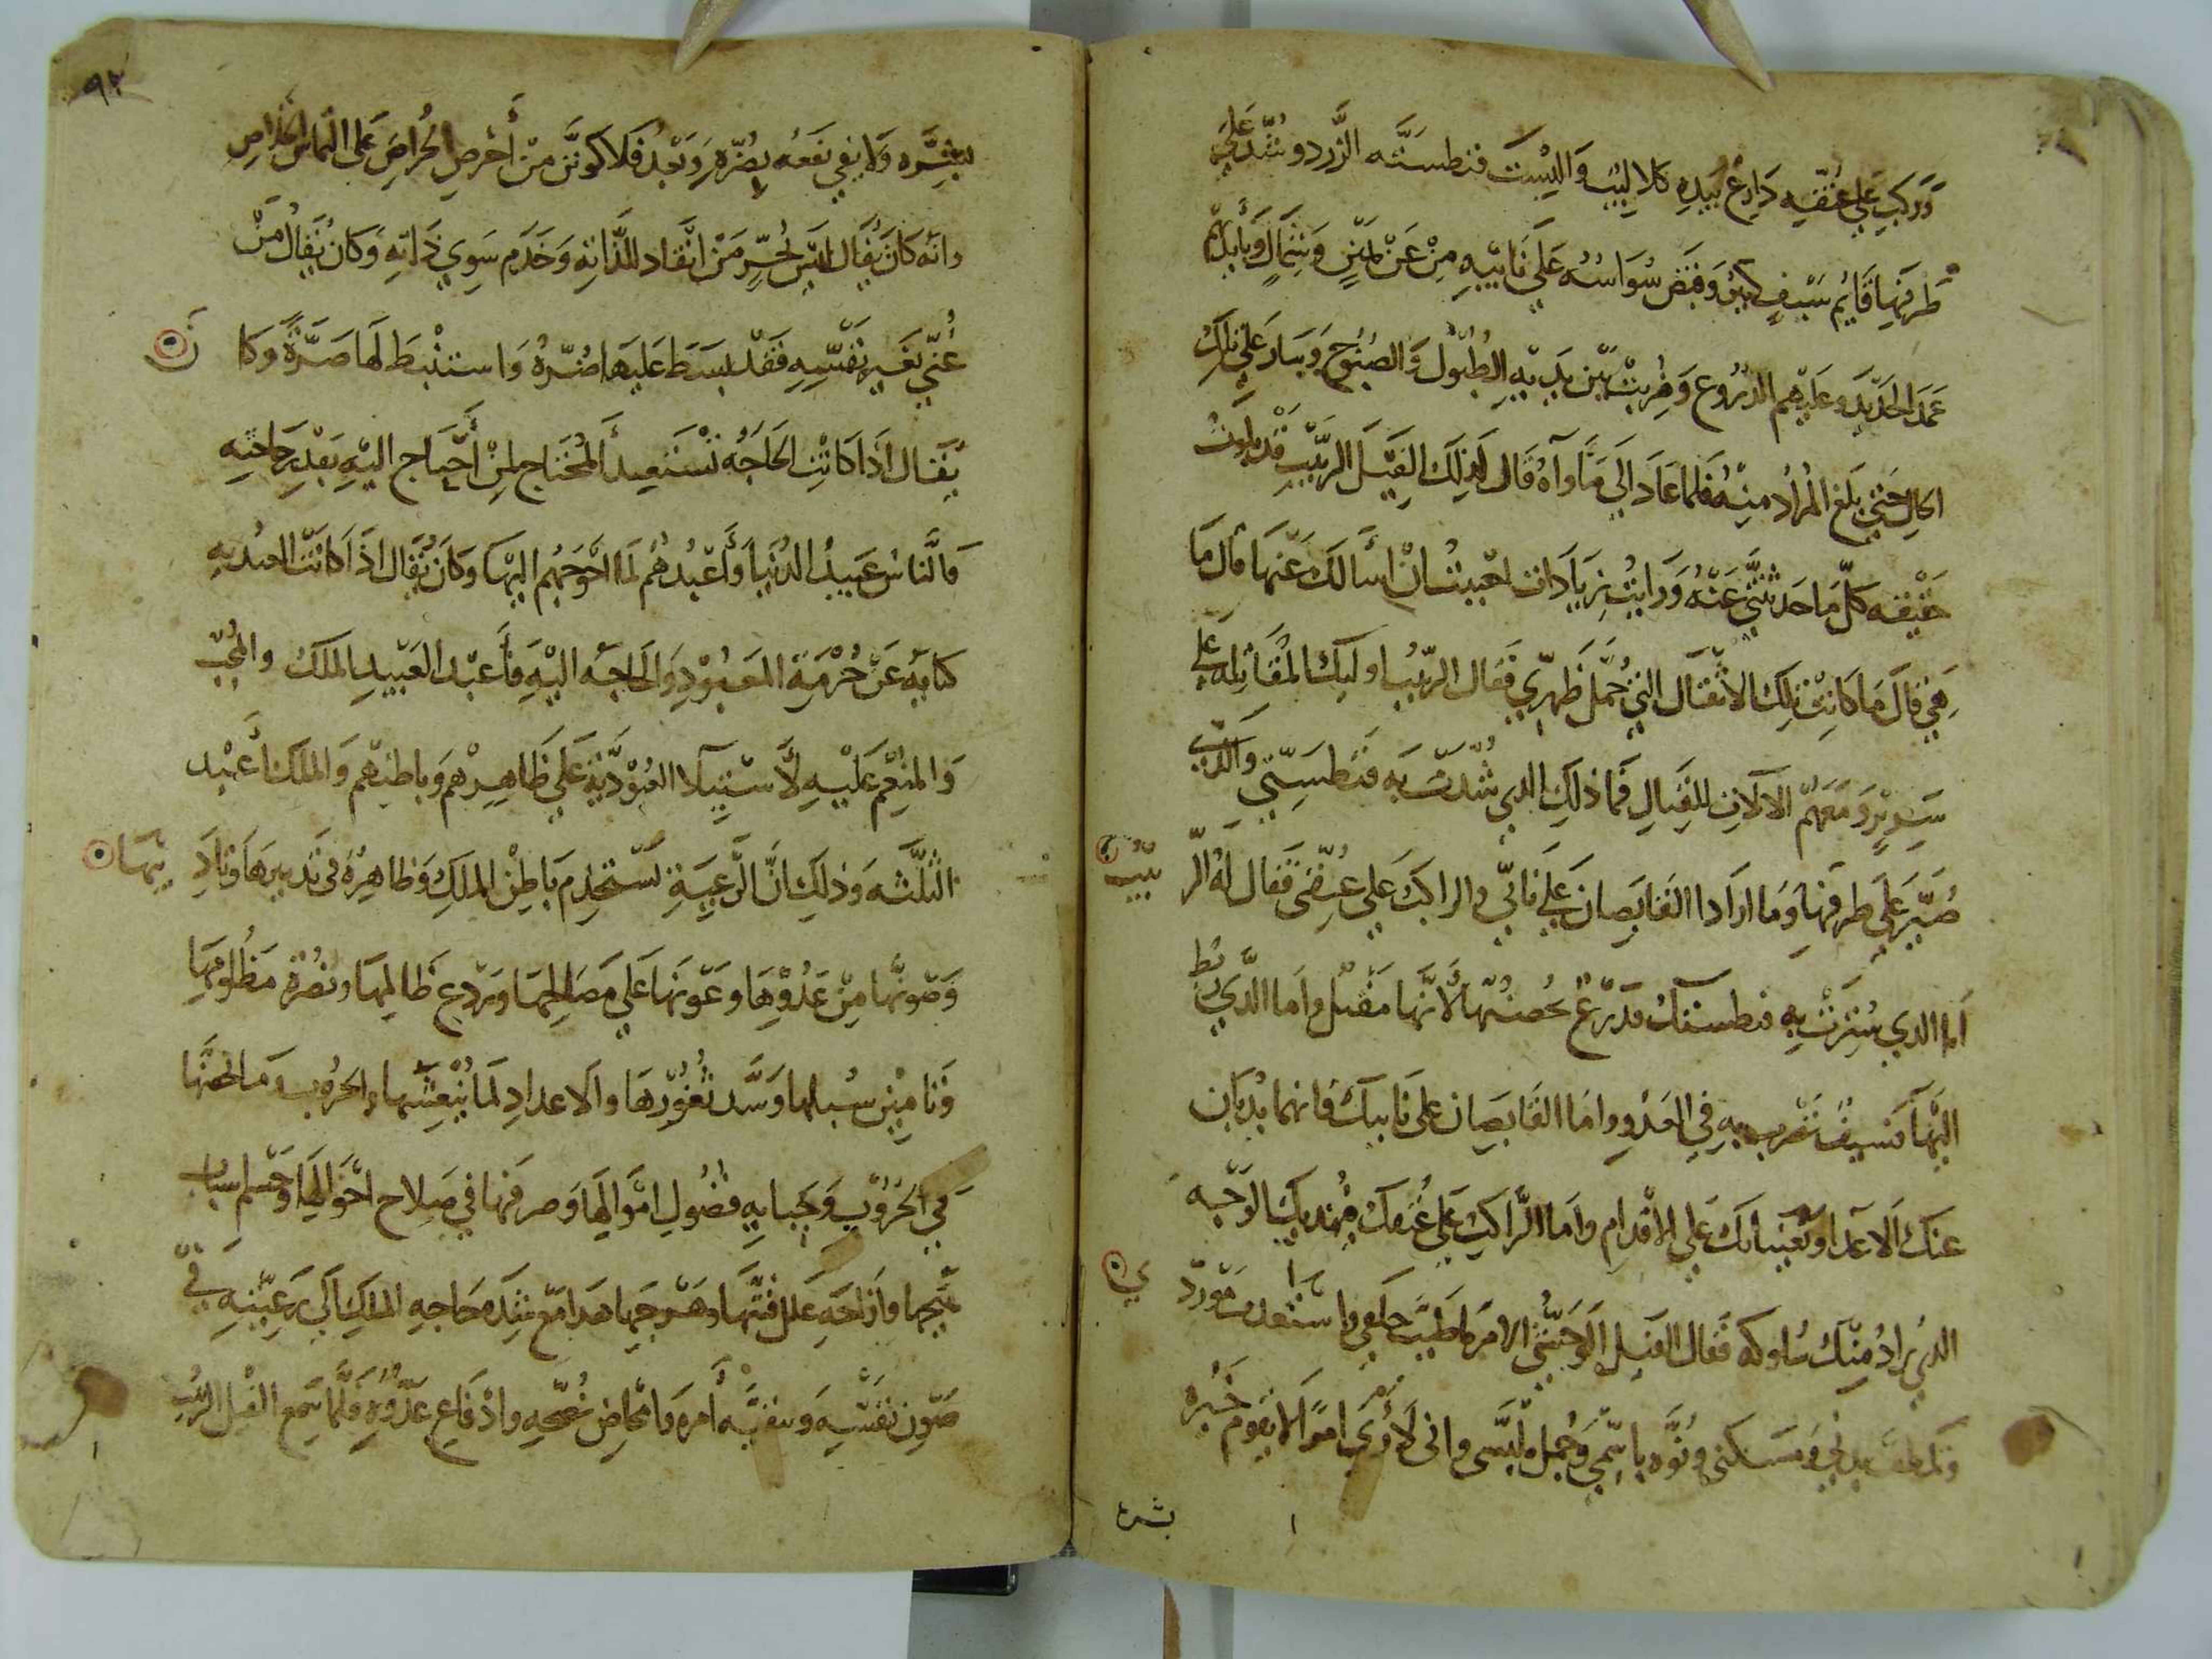 وركب على عنقه دارع بيده كلاليب والبست فنطسته الزرد وشد على
طرفها قايم سيف كبير وقبض سواسه على نابيه من عن يمين وشمال وبايديهم
عمد الحديد وعليهم الدروع وضربت بين يديه الطبول والصنوج وسار على تلك
الحال حتى بلغ المراد منه فلما عاد الى ماواه قال لذلك الفيل الربيب قد بلوت
حقيقه كل ما حدثتنى عنه ورايت زيادات احببت ان اسالك عنها قال ما
هي قال ما كانت تلك الاثقال التي حمل ظهري فقال الربيب اوليك المقاتله على
سرير ومعهم الآلات للقتال فما ذلك الدي شدت به فنطستي والدي
صير على طرفها وما اراد القابضان على نابي والراكب على عنقي فقال له الربيب
اما الدي سترت به فنطستك فدرع تحصنها لانها مقتل واما الدي ربط
اليها فسيف تضرب به في العدو واما القابضان على نابيك فانهما يذبان
عنك الاعدا ويعينانك على الاقدام واما الراكب على عنقك فيهديك الوجه
الدي يراد منك سلوكه فقال الفيل الوحشي الامر ما طيب مطعمي واستعدب موردي
ونظف بدني ومسكني ونوه باسمي وجمل ملبسى وانى لاري امورا لا يقوم خيره
بشره
٩٢
بشره ولا يفي نفعه بضره وبعد فلاكونن من أحرص الحراص على التماس الخلاص
وانه كان يقال ليس بحر من انقاد للذاته وخدم سوي ذاته وكان يقال من
عني بغير نفسه فقد بسط عليها ضره واستنبط لها ضرة وكان
يقال اذا كانت الحاجه تستعبد المحتاج لمن أحتاج اليه بقدر حاجته
فالناس عبيد الدنيا وأعبدهم لها احوجهم اليها وكان يقال اذا كانت العبوديه
كنايه عن خرمة المعبود والحاجه اليه فأعبد العبيد الملك والمحب
والمنعم عليه لاستيلا العبودية على ظاهرهم وباطنهم والملك أعبد
الثلثه وذلك ان الرعية تستخدم باطن الملك وظاهره في تدبيرها وتاديبها
وصونها من عدوها وعونها على مصالحها وردع ظالمها ونصرة مظلومها
وتامين سبلها وسد ثغورها والاعداد لما ينعشها والحروب
في الحروب وجبايه فضول اموالها وصرفها في صلاح احوالها وحسم اسباب
وازاحه علل فتنها وهرجها هدا مع شده حاجه الملك الى رعيته في
صون نفسه أمره وامحاض نصحه وادفاع عدوه فلما سمع الفيل الربيب